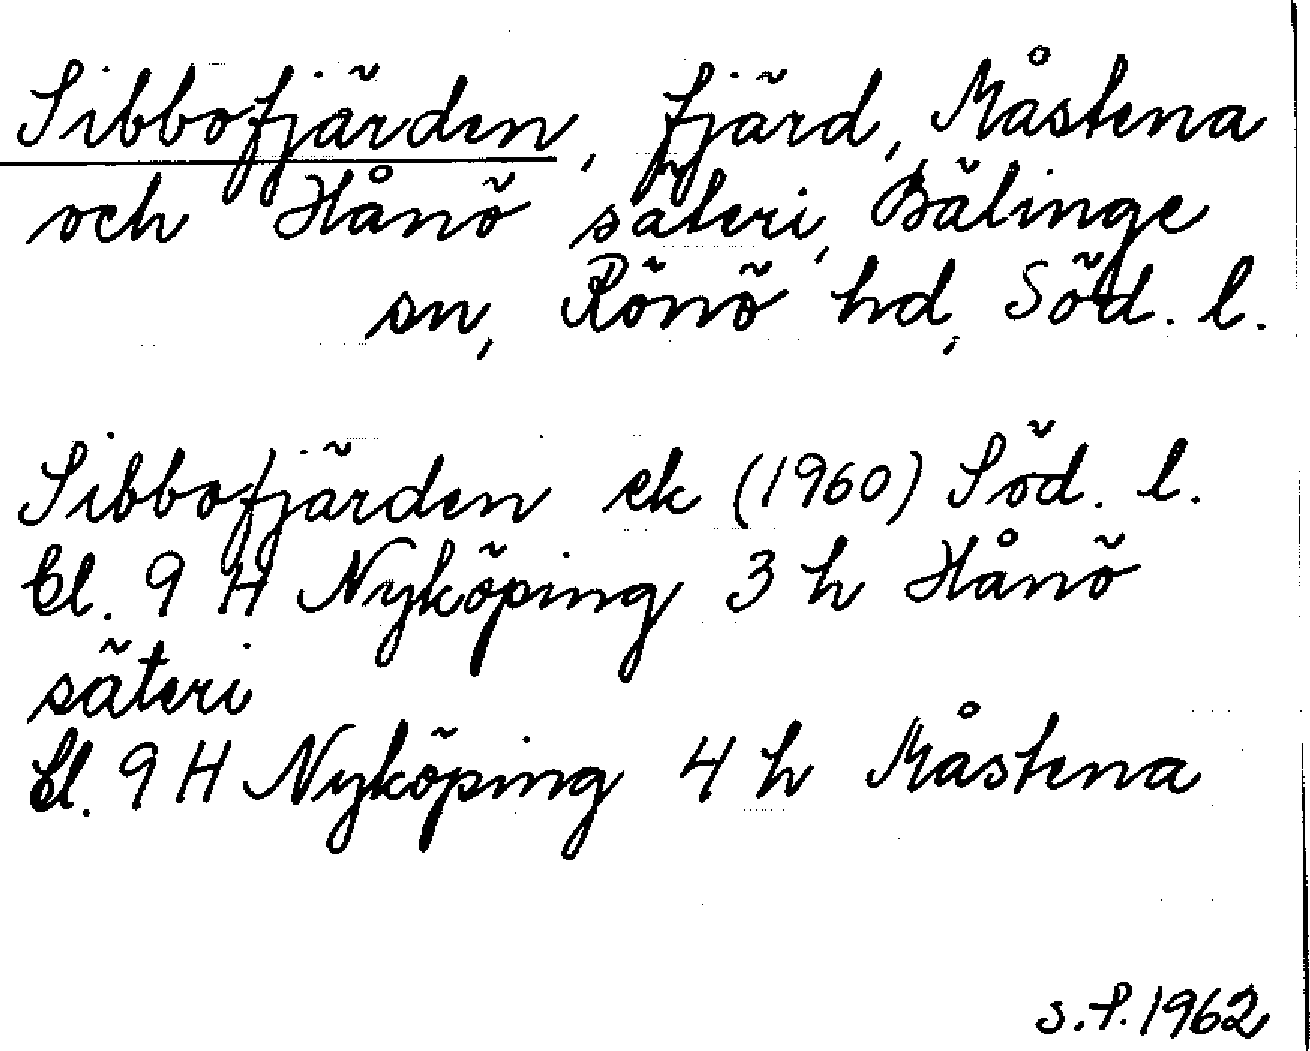 Sibbofjärden, fjärd, Måstena
och Hånö säteri, Bälinge
sn, Rönö hd, Söd. l.
Sibbofjärden ek (1960) Söd. l.
bl. 9 H Nyköping 3 h Hånö
säteri
bl. 9 H Nyköping 4 h Måstena
S.P. 1962